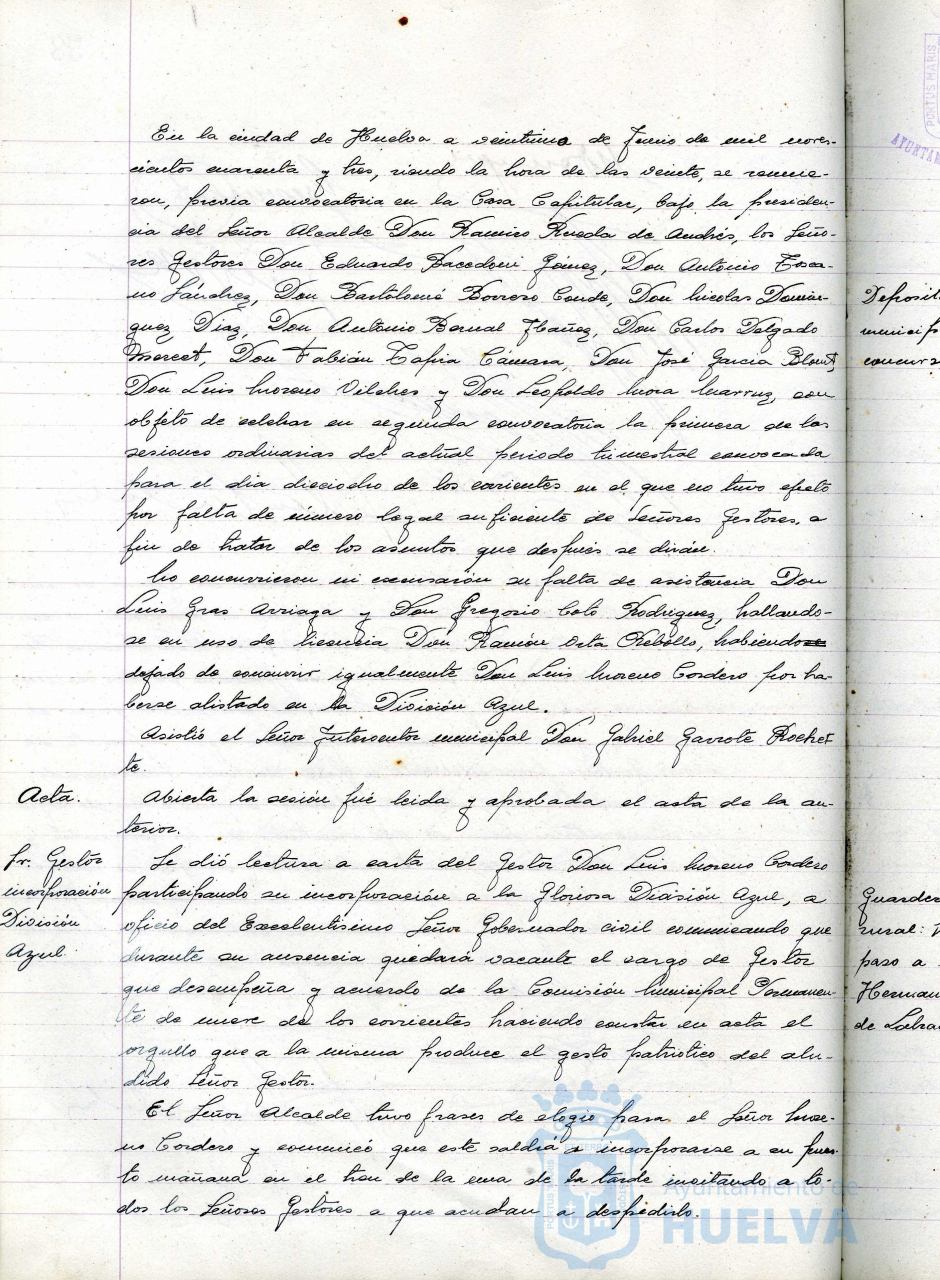 En la ciudad de Huelva a veintiuno de Junio de mil nove-
cientos cuarenta y tres, siendo la hora de las veinte, se reunie-
ron, previa convocatoria en la Casa Capitular, bajo la presiden-
cia del Señor Alcalde Don Ramiro Rueda de Andrés, los Seño-
res Gestores Don Eduardo Gómez, Don Antonio Tosca-
no Sánchez, Don Bartolomé Borrero Conde, Don Nicolas Domin-
guez Diaz, Don Antonio Bernal Ibañez, Don Carlos Delgado
Don Fabián Tapia Cámara, Don José Garcia
Don Luis Moreno Vilches y Don Leopoldo Mora con
objeto de celebrar en segunda convocatoria la primera de las
sesiones ordinarias del actual periodo trimestral convocada
para el dia dieciocho de los corrientes en el que no tuvo efecto
por falta de número legal suficiente de Señores Gestores, a
fin de tratar de los asuntos que después se dirán.
No concurrieron ni excusaron su falta de asistencia Don
Luis Gras Arriaga y Don Gregorio Rodriguez, hallando-
se en uso de licencia Don Ramón Orta Rebollo, habiendose
dejado de concurrir igualmente Don Luis Moreno Cordero por ha-
berse alistado en la División Azul.
Asistió el Señor Interventor municipal Don Gabriel Garrote Rochet-
te.
Acta.
Abierta la sesión fué leida y aprobada el acta de la an-
terior.
Sr. Gestor
incorporación
División
Azul.
Se dió lectura a carta del Gestor Don Luis Moreno Cordero
participando su incorporación a la Gloriosa División Azul, a
oficio del Excelentisimo Señor Gobernador civil comunicando que
durante su ausencia quedará vacante el cargo de Gestor
que desempeña y acuerdo de la Comisión Municipal Permanen-
te de nueve de los corrientes haciendo constar en acta el
orgullo que a la misma produce el gesto patriotico del alu-
dido Señor Gestor.
El Señor Alcalde tuvo frases de elogio para el Señor More-
no Cordero y comunicó que este saldrá a incorporarse a su pues-
to mañana en el tren de la una de la tarde invitando a to-
dos los Señores Gestores a que acudan a despedirlo.
Deposit
municip
concurs
Guarder
rural:
paso a
Herman
de Labra
PORTUS MARIS
AYUNTA
Ayuntamiento de
HUELVA